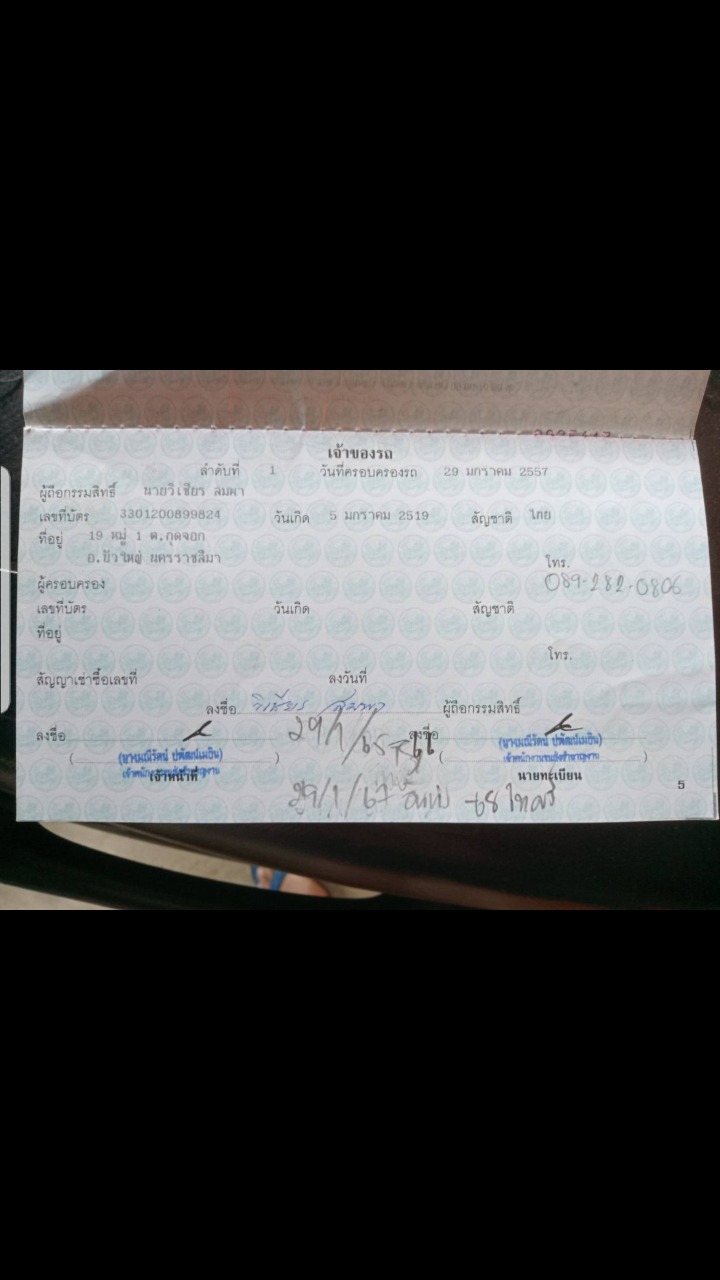 เจ้าของรถ
ลำดับที่ 1 วันที่ครอบครองรถ 29 มกราคม 2557
ผู้ถือกรรมสิทธิ์ นายวิเชียร ลมพา
เลขที่บัตร 3301200899824 วันเกิด 5 มกราคม 2519 สัญชาติ ไทย
ที่อยู่ 19 หมู่ 1 ต.กุดจอก
อ.บัวใหญ่ นครราชสีมา
โทร.
ผู้ครอบครอง 089-282-0806
เลขที่บัตร วันเกิด สัญชาติ
ที่อยู่
โทร.
สัญญาเช่าซื้อเลขที่ ลงวันที่
ลงชื่อ วิเชียร ผู้ถือกรรมสิทธิ์
ลงชื่อ 29/1/65 ลงชื่อ
( ) ( )
เจ้าหน้าที่ นายทะเบียน
29/1/67
5